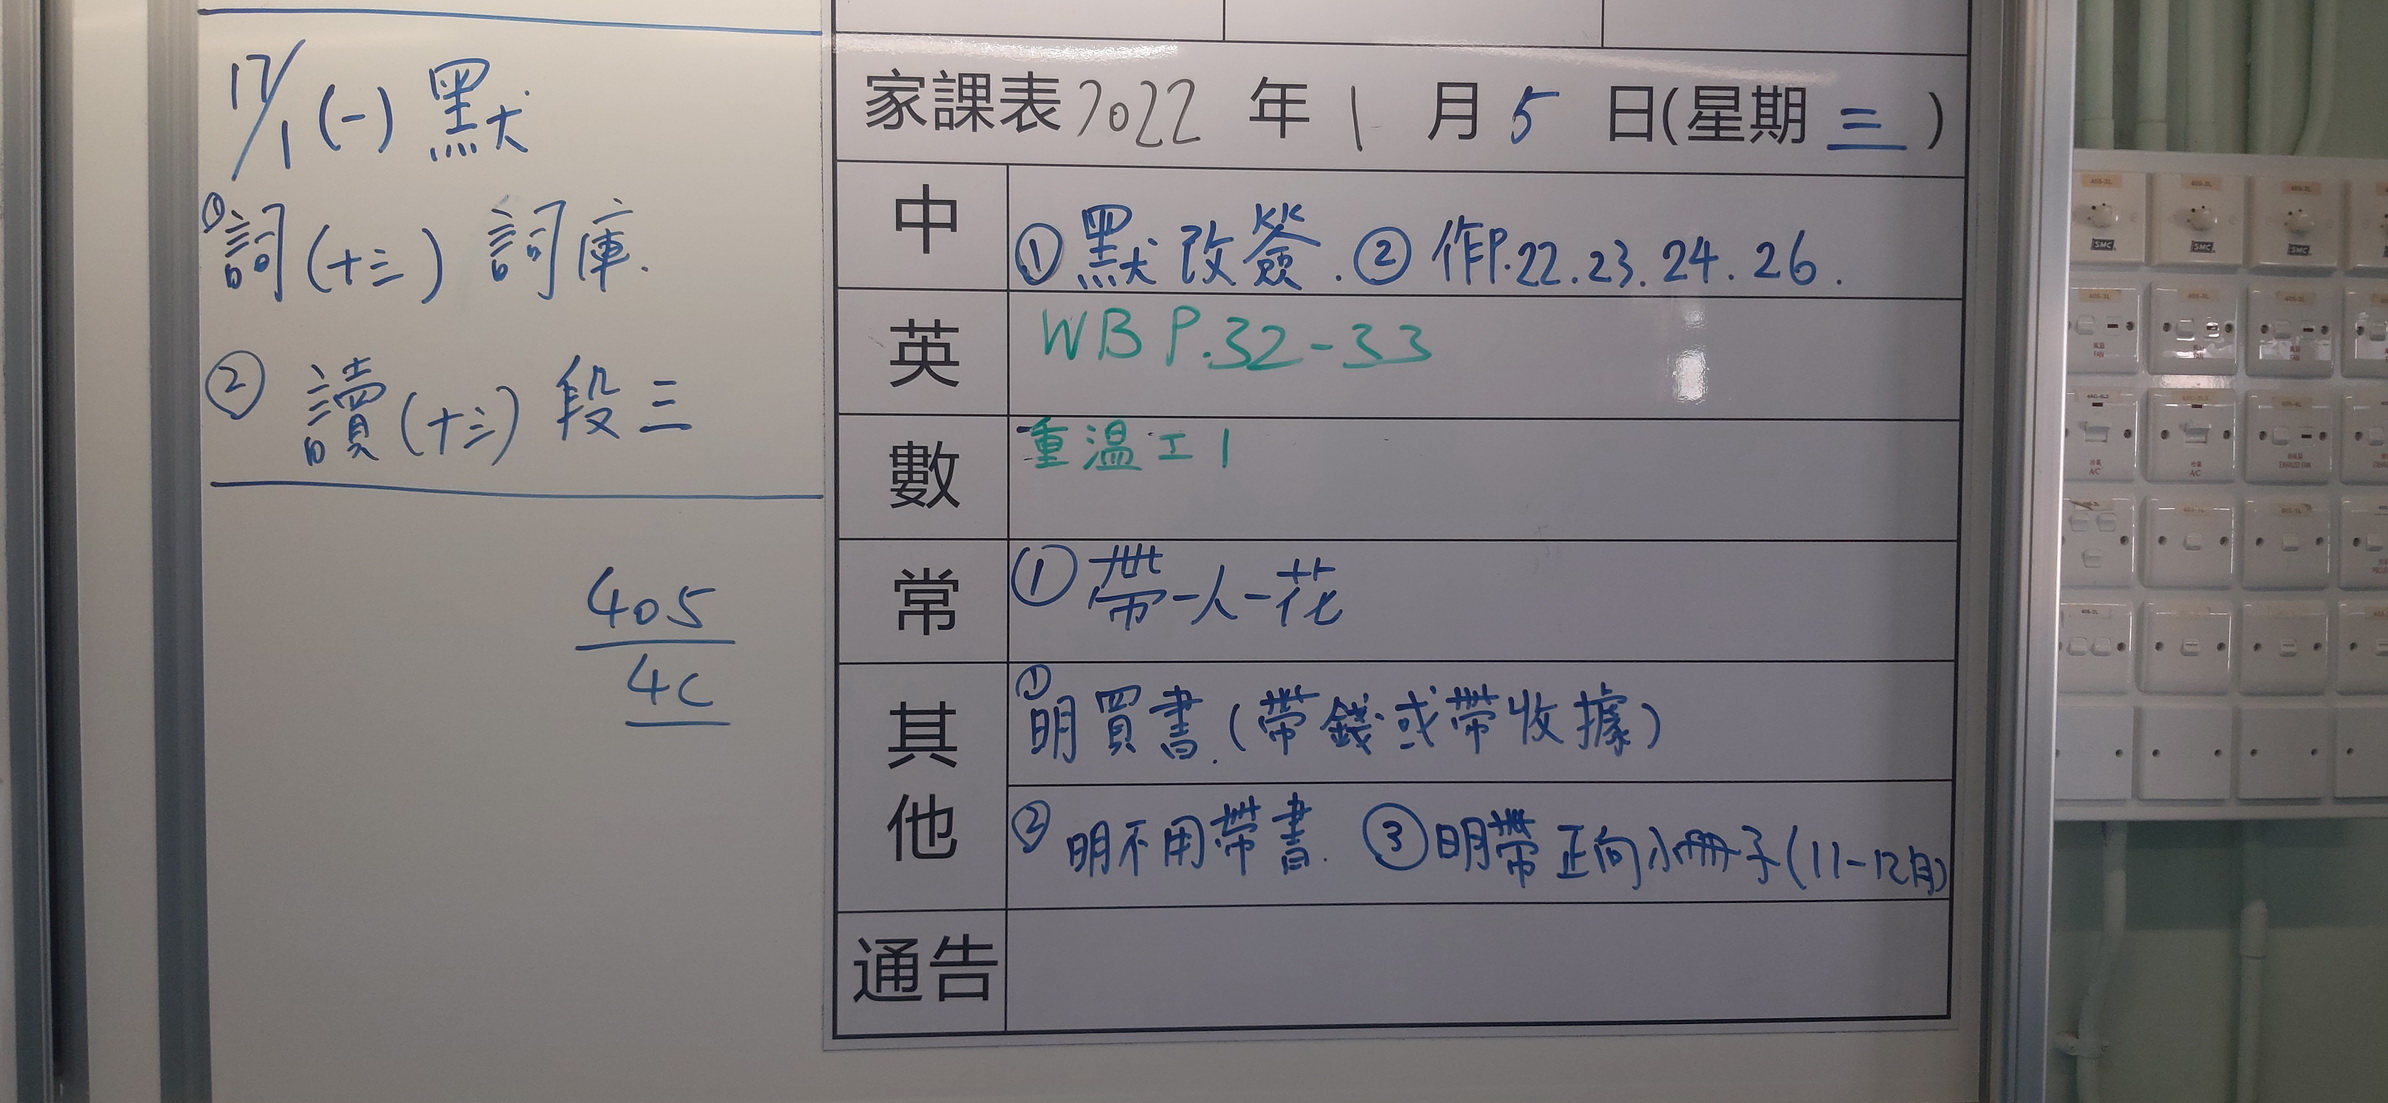 17/1 (一) 默
① 詞(十三) 詞庫.
② 讀(十三) 段三
405
4C
家課表 2022 年 1 月 5 日(星期三)
中 ① 默改簽. ② 作P.22.23.24.26.
英 WB P.32-33
數 重溫工1
常 ① 帶一人一花
其他 ① 明買書.(帶錢或帶收據)
② 明不用帶書. ③ 明帶正向小冊子(11-12月)
通告